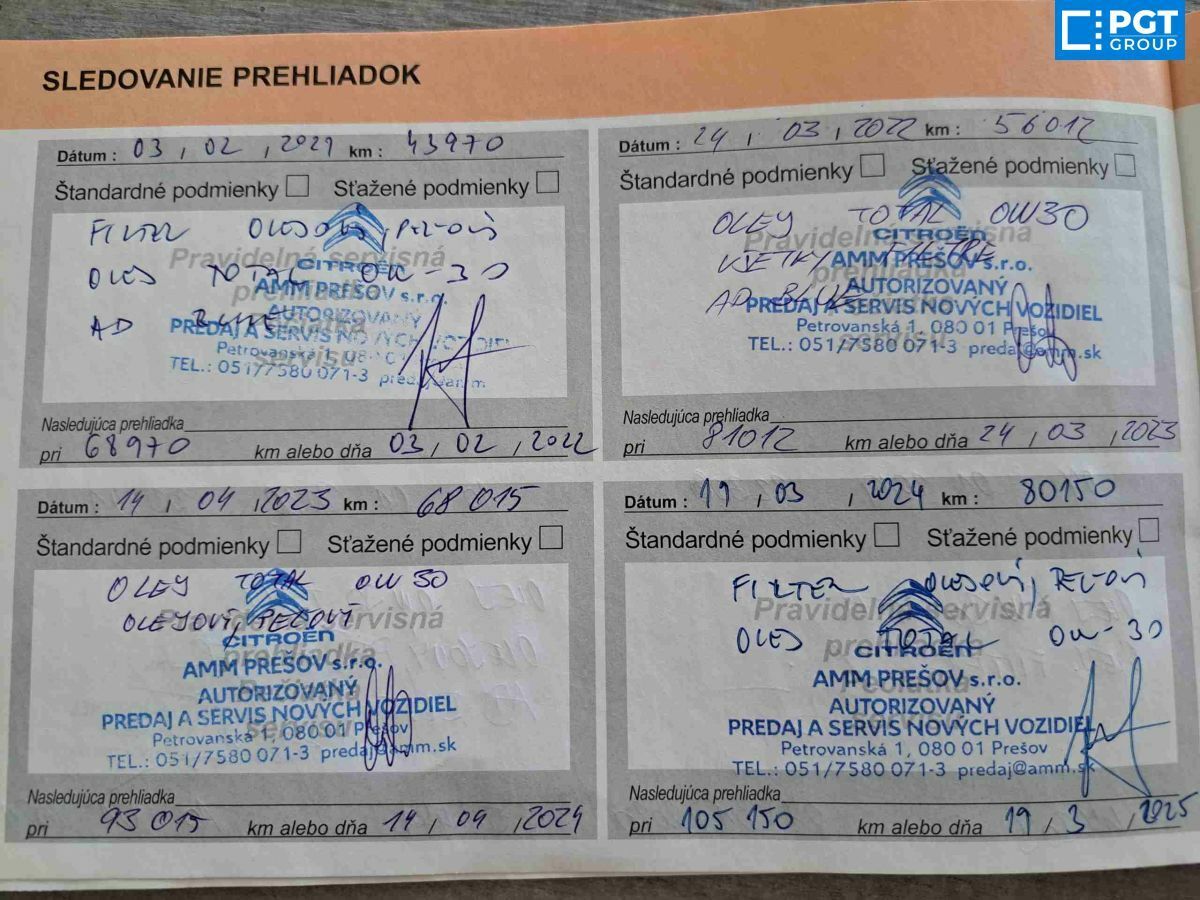 PGT
GROUP
SLEDOVANIE PREHLIADOK
Dátum : 03 , 02 , 2021 km : 43970
Štandardné podmienky Sťažené podmienky
FILTER OLEJOVÝ, PEĽOVÝ
Pravidelná servisná
prehliadka
CITROËN
OLEJ TOTAL 0W-30
AMM PREŠOV s.r.o.
AUTORIZOVANÝ
AD BLUE
PREDAJ A SERVIS NOVÝCH VOZIDIEL
Petrovanská 1, 080 01
TEL.: 051/7580 071-3 predaj@amm.
Nasledujúca prehliadka
pri 68970 km alebo dňa 03 , 02 , 2022
Dátum : 24 , 03 , 2022 km : 56012
Štandardné podmienky Sťažené podmienky
OLEJ TOTAL 0W30
Pravidelná servisná
CITROËN
VŠETKY FILTRE
AMM PREŠOV s.r.o.
AUTORIZOVANÝ
AD BLUE
PREDAJ A SERVIS NOVÝCH VOZIDIEL
Petrovanská 1, 080 01 Prešov
TEL.: 051/7580 071-3 predaj@amm.sk
Nasledujúca prehliadka
pri 81012 km alebo dňa 24 , 03 , 2023
Dátum : 14 , 04 , 2023 km : 68015
Štandardné podmienky Sťažené podmienky
OLEJ TOTAL 0W30
Pravidelná servisná
OLEJOVÝ, PEĽOVÝ
CITROËN
prehliadka
AMM PREŠOV s.r.o.
AUTORIZOVANÝ
PREDAJ A SERVIS NOVÝCH VOZIDIEL
Petrovanská 1, 080 01 Prešov
TEL.: 051/7580 071-3 predaj@amm.sk
Nasledujúca prehliadka
pri 93015 km alebo dňa 14 , 04 , 2024
Dátum : 19 , 03 , 2024 km : 80150
Štandardné podmienky Sťažené podmienky
FILTER OLEJOVÝ, PEĽOVÝ
Pravidelná servisná
OLEJ TOTAL 0W-30
prehliadka
CITROËN
AMM PREŠOV s.r.o.
AUTORIZOVANÝ
PREDAJ A SERVIS NOVÝCH VOZIDIEL
Petrovanská 1, 080 01 Prešov
TEL.: 051/7580 071-3 predaj@amm.sk
Nasledujúca prehliadka
pri 105 150 km alebo dňa 19 , 3 , 2025